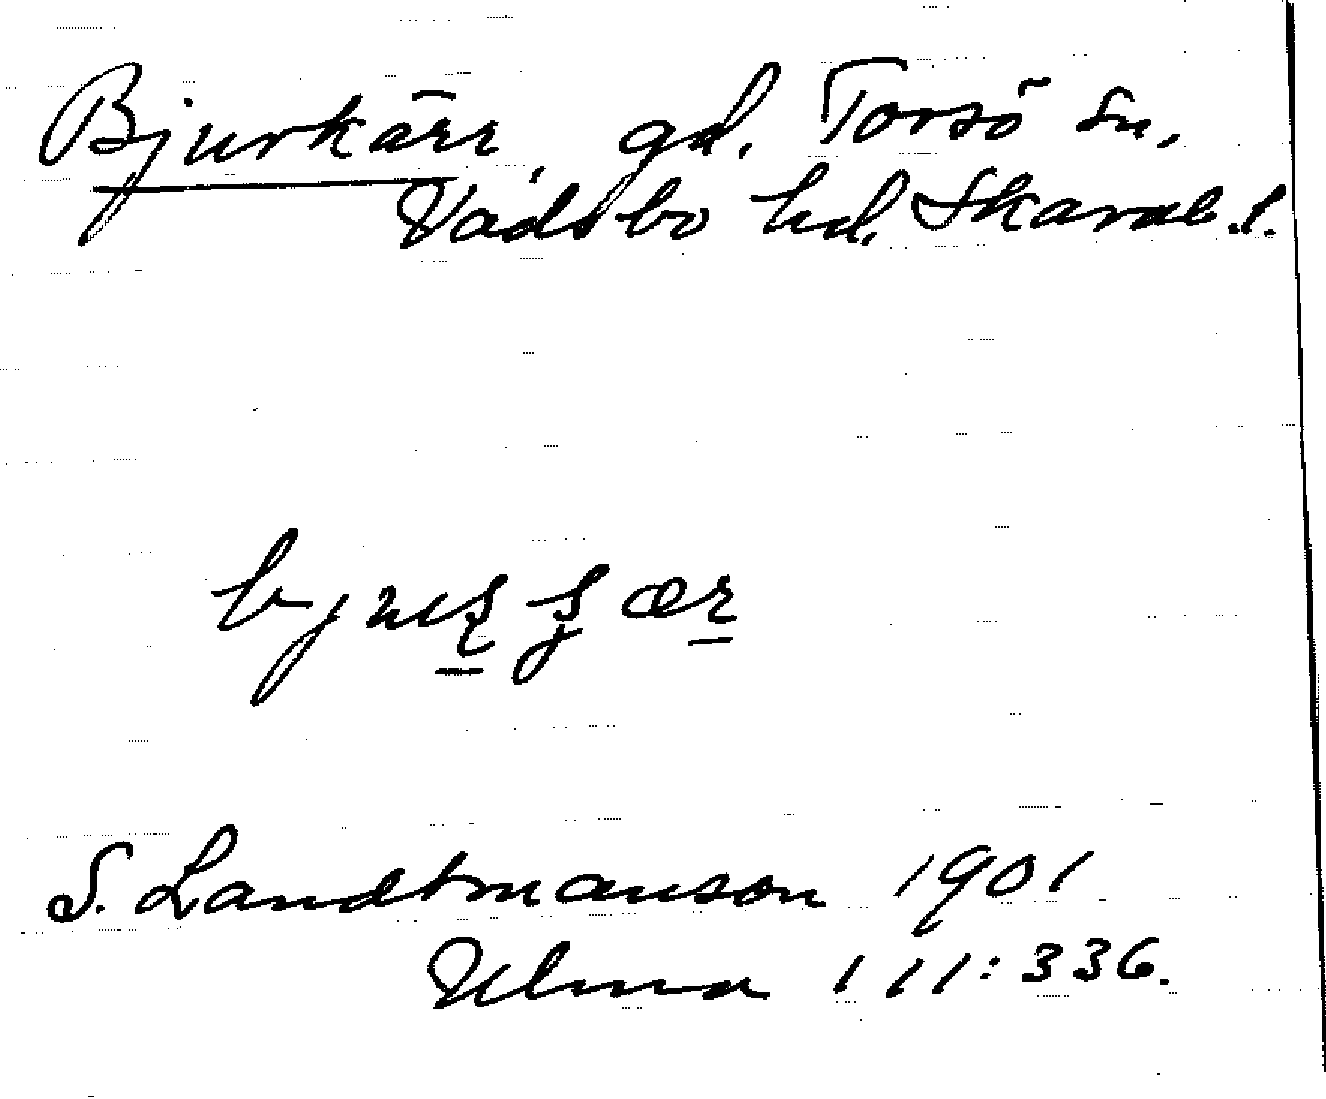 Bjurkärr, gd. Torsö sn,
Vadsbo hd. Skarab. l.
S. Landtmanson 1901
Ulma 111:336.